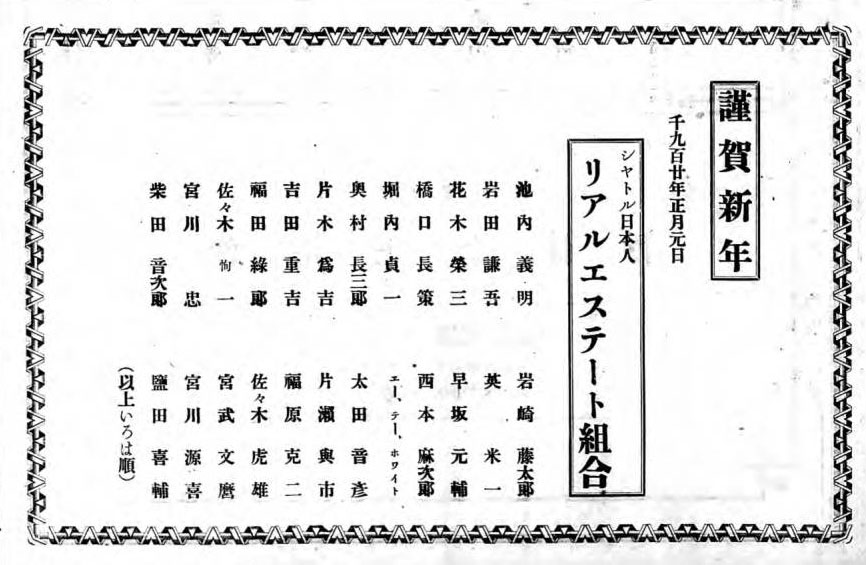 謹賀新年
千九百廿年正月元日
シヤトル日本人
リアルエステート組合
池内義明
岩崎藤太郎
岩田謙吾
英米一
花木榮三
早坂元輔
橋口長策
西本麻次郎
堀內貞一
エー、テー、ホワイト
奧村長三郎
太田音彥
片木爲吉
片瀨與市
吉田重吉
福原克二
福田綠郎
佐々木虎雄
佐々木恂一
宮武文麿
宮川忠
宮川源喜
柴田音次郎
鹽田喜輔
(以上いろは順)